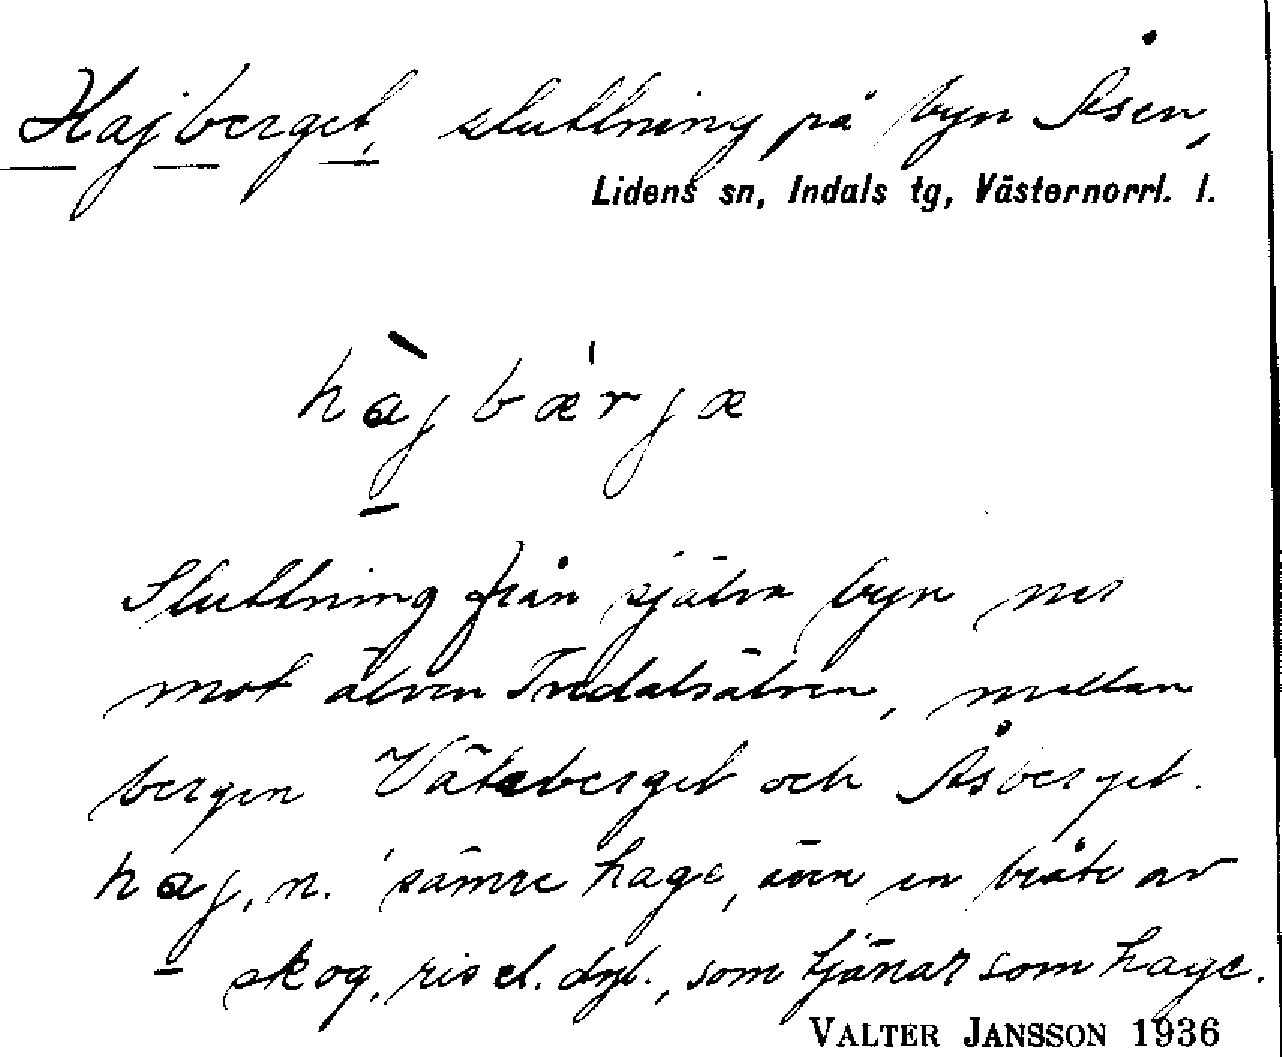 Hajberget, sluttning på byn Åsen,
Lidens sn, Indals tg, Västernorrl. l.
hàjbærjæ
Sluttning från själva byn ner
mot älven Indalsälven, mellan
bergen Vätaberget och Åsberget.
haj, n. 'sämre hage, även en bråte av
skog, ris el. dyl., som tjänar som hage.
VALTER JANSSON 1936